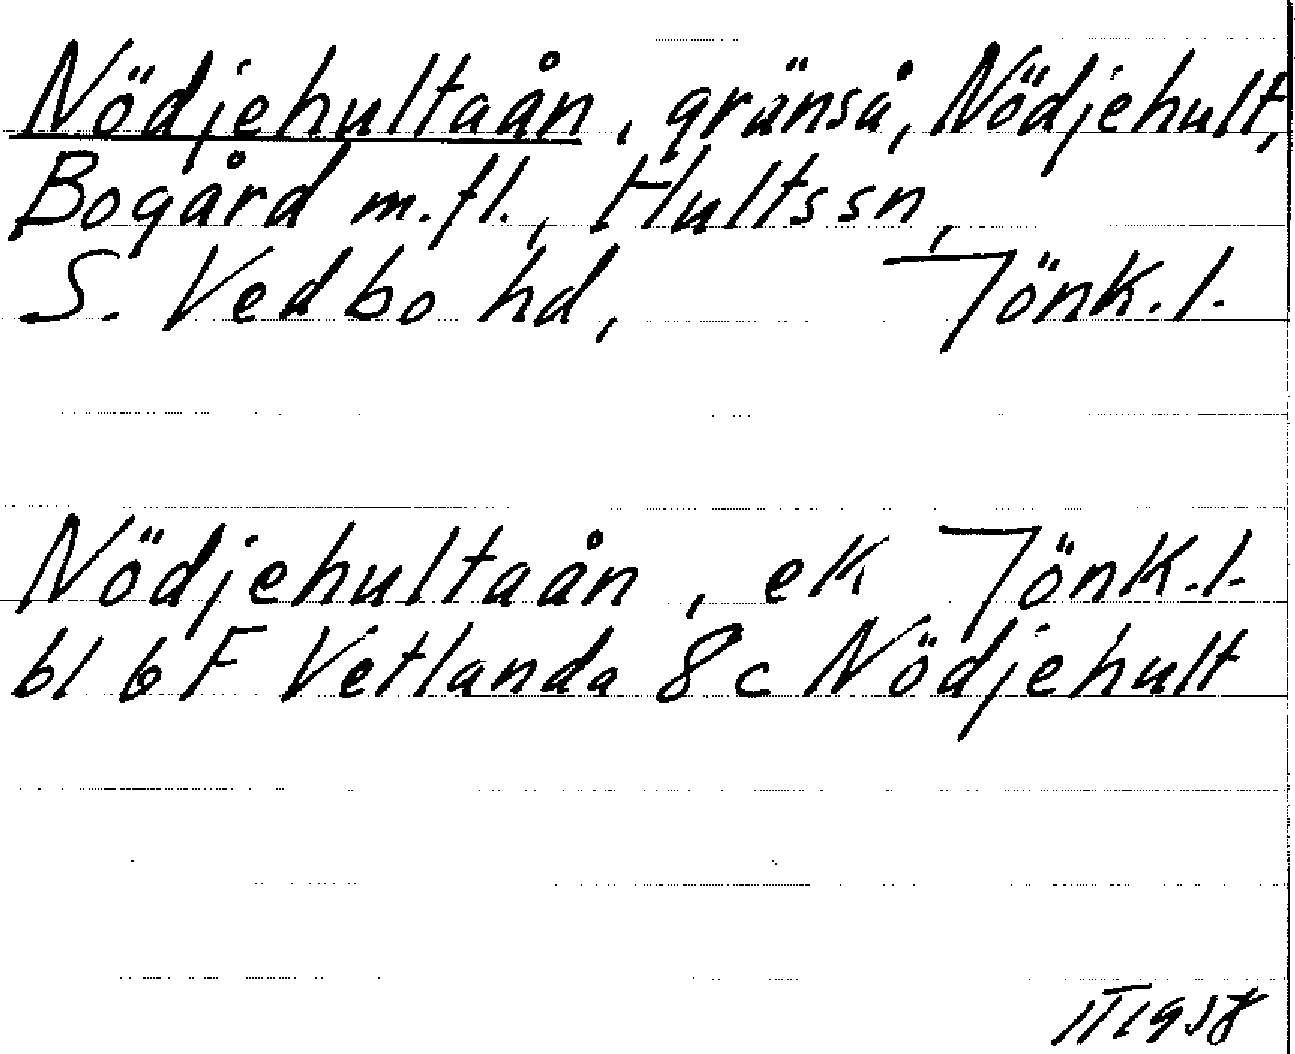 Nödjehultaån, gränså, Nödjehult,
Bogård m.fl., Hults sn,
S. Vedbo hd, Jönk.l.
Nödjehultaån, ek Jönk.l.
bl 6F Vetlanda 8c Nödjehult